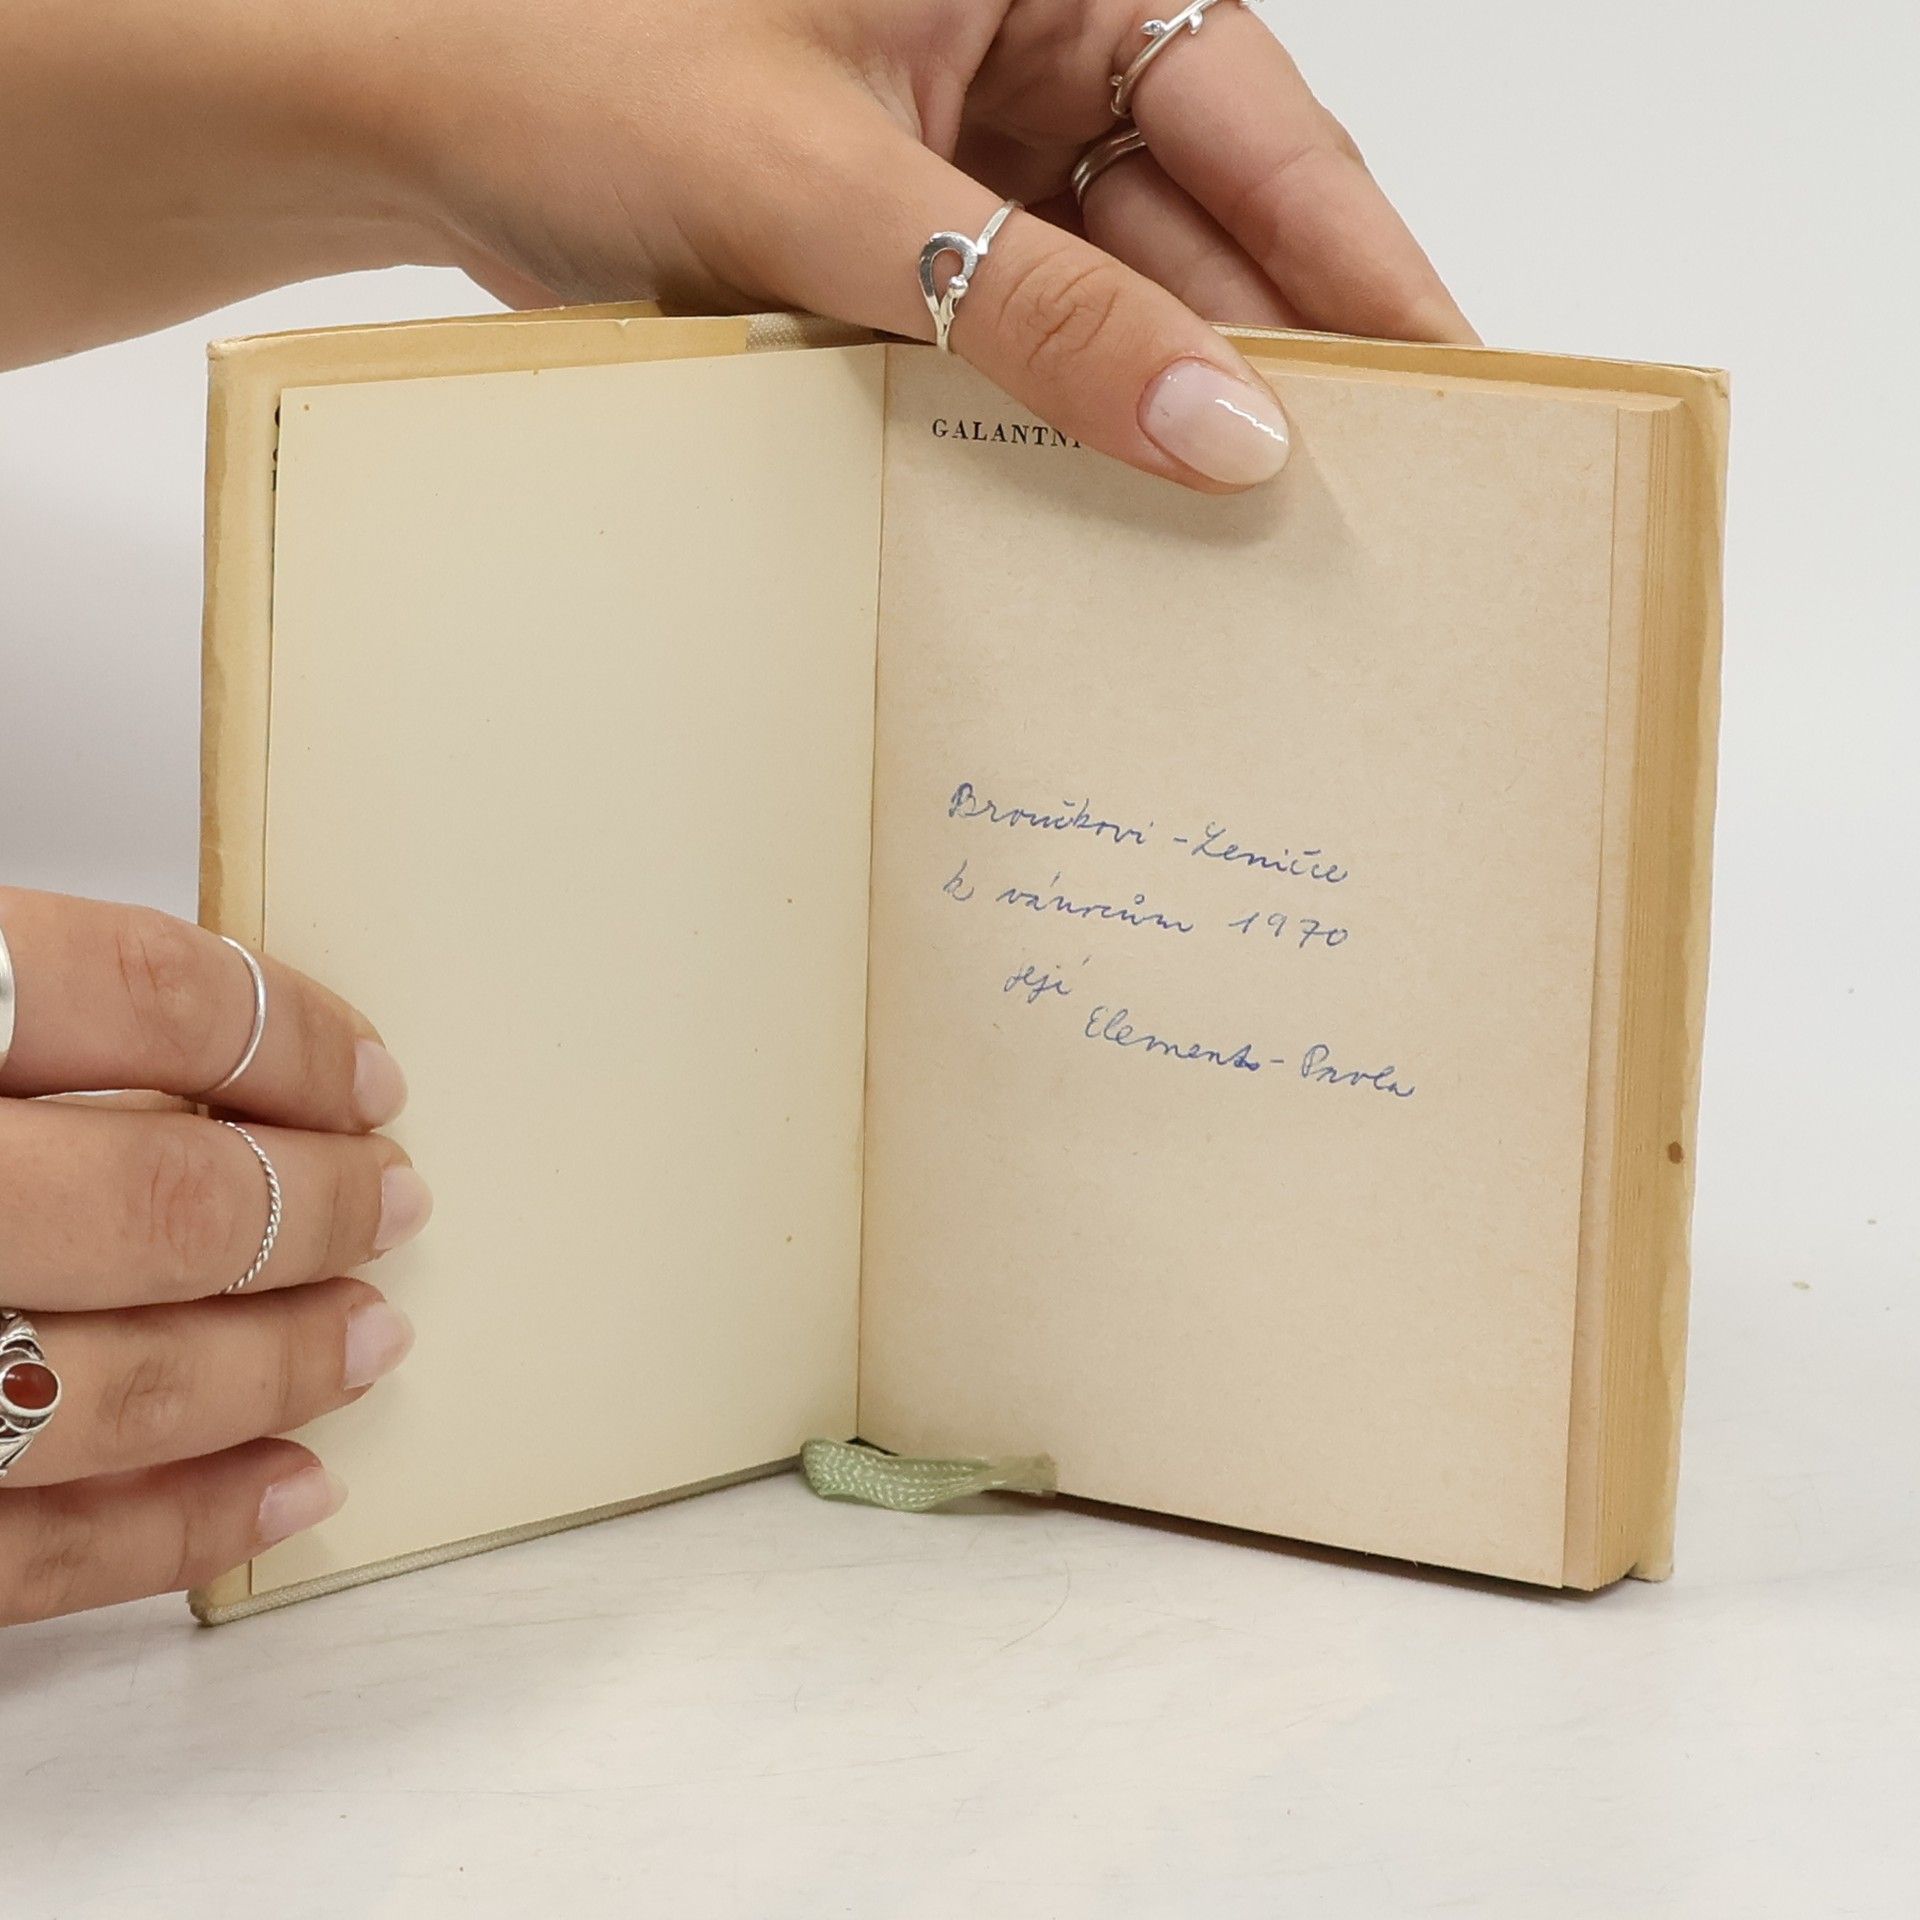 GALANTNÍ
Broučkovi - Leničce
k vánocům 1970
její
Elements - Pavla